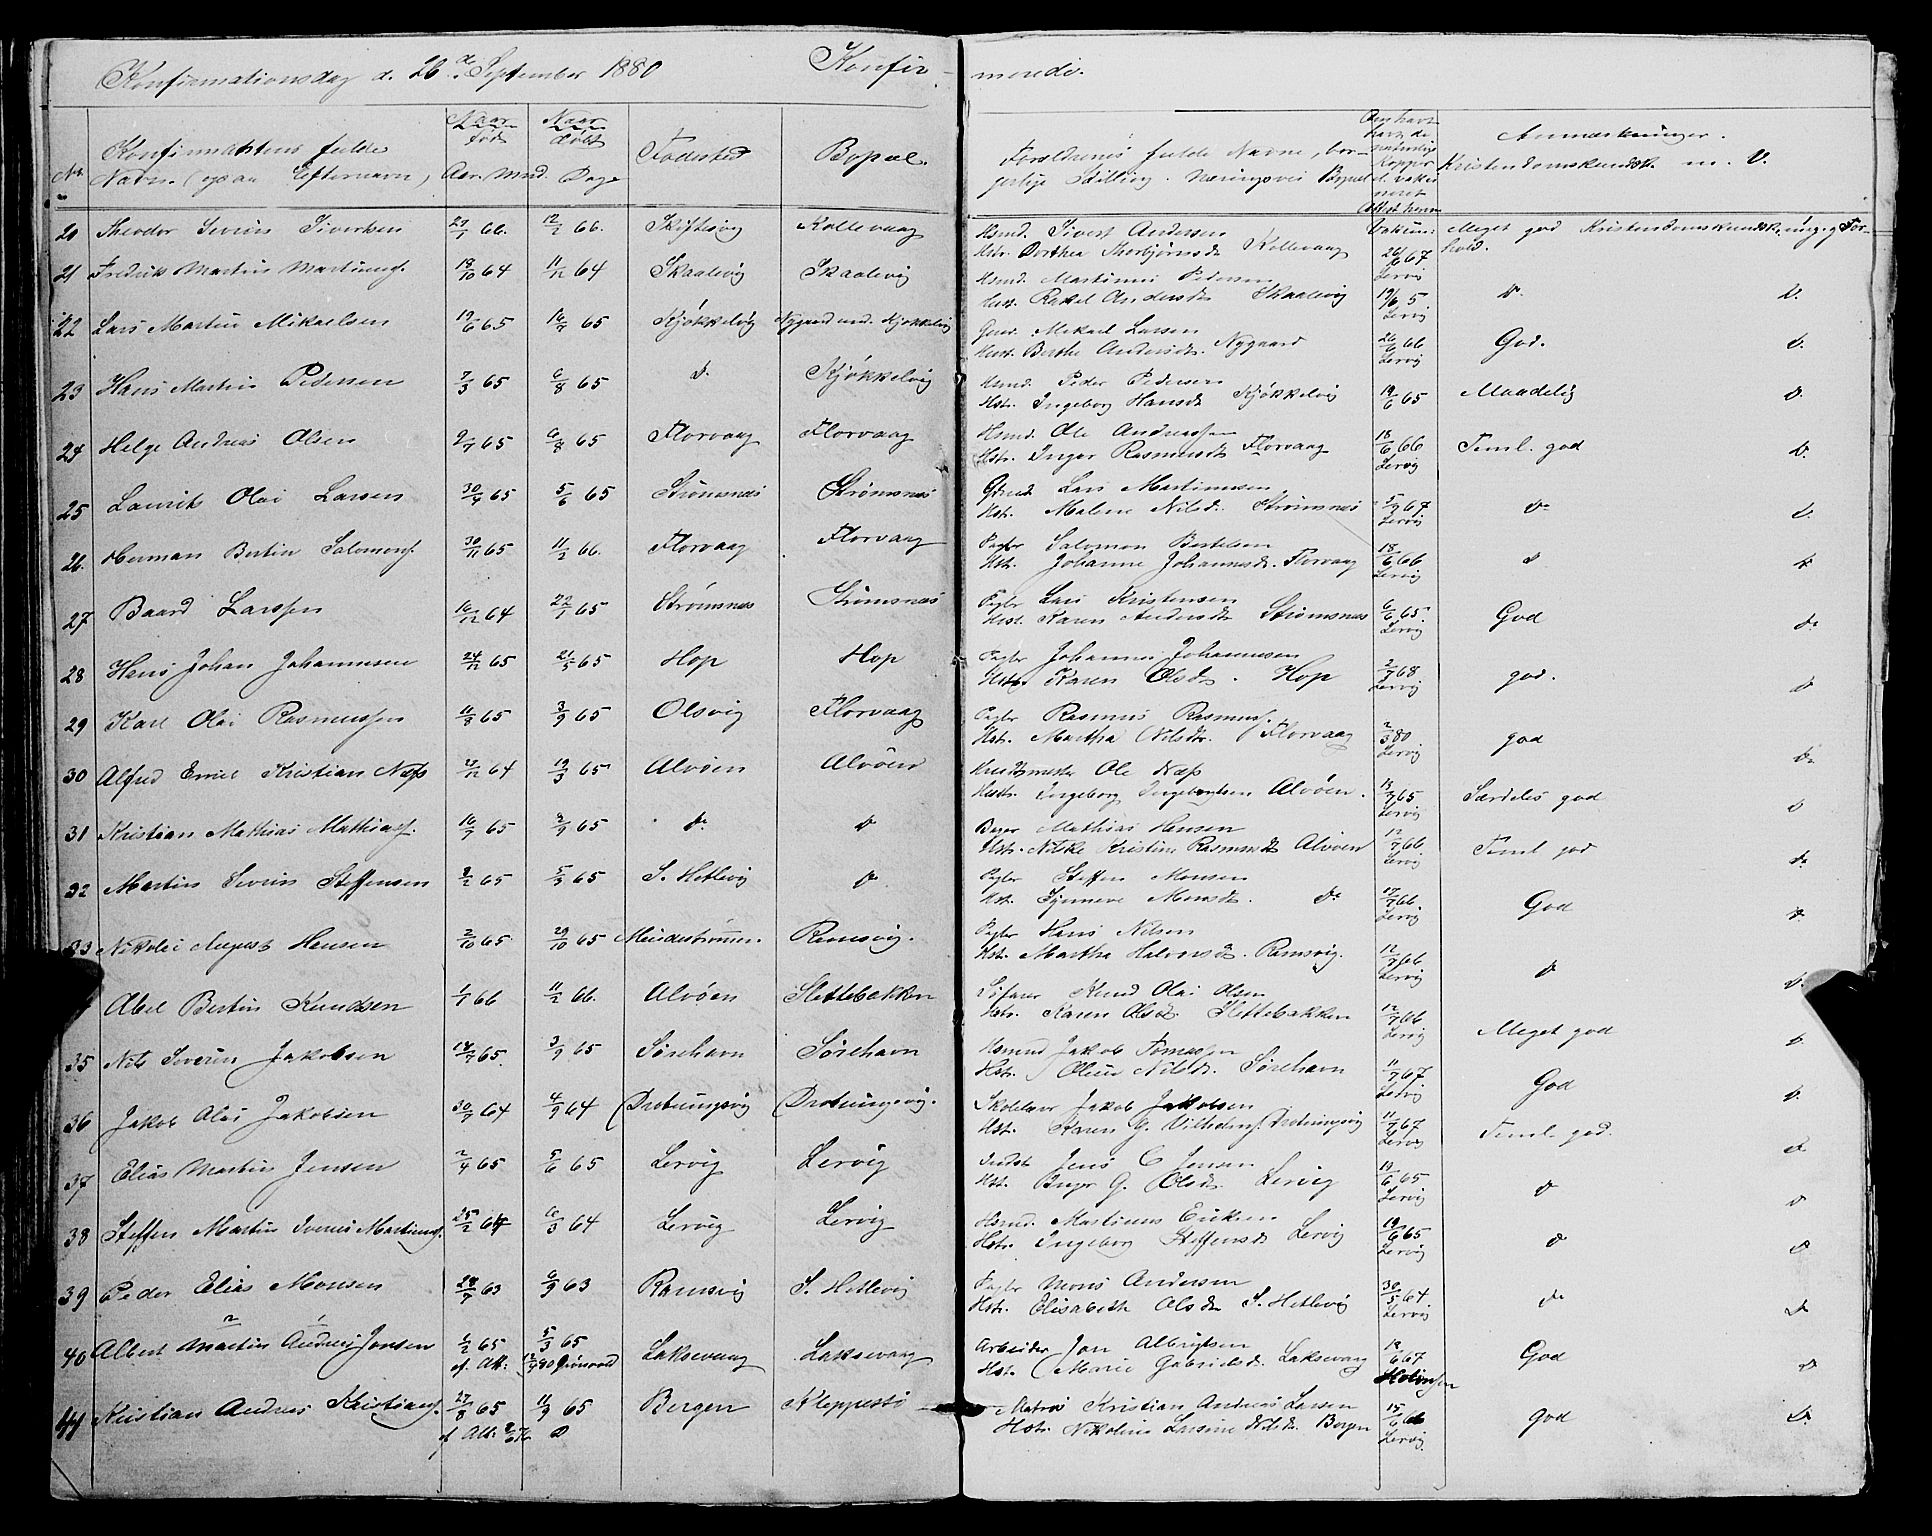 Konfirmationsdag d. 26de September 1880 Konfir-
merede.
No. Konfirmantens fulde Navn (ogsaa Efternavn) Naar født Aar. Mnd. Naar døbt Dage Fødested Bopæl.
Forældrenes fulde Navne, bor-
gerlige Stilling. Næringsvei Bopæl
Anmærkninger.
Kristendomskundsk. m. V.
20 Theodor Severin Sivertsen 27/1 66. 12/2 66. Skiftesvig Kollevaag
Hsmd. Sivert Andersen
Hstr. Dorthea Thorbjørnsd. Kollevaag 26/6 67 Lervig Meget god Kristendomskundsk. 
21 Fredrik Martin Martinuss. 18/10 64 11/12 64 Skaalevig Skaalevig
Hsmd. Martinus Pedersen
Hust. Rakel Andersdt. Skaalevig 19/6 65 Lervig D. D.
22 Lars Martin Mikaelsen 19/6 65 16/7 65 Kjøkkelvig Nygaard und. Kjøkkelvig
Gmd. Mikael Larsen
Hust. Berthe Andersdt. Nygaard 26/6 66 Lervig God. D.
23 Hans Martin Pedersen 7/3 65 6/8 65 D. Kjøkkelvig
Hsmd. Peder Pedersen
Hstr. Ingeborg Hansdt. Kjøkkelvig 19/6 65 Maadelig D.
24 Helge Andreas Olsen 9/7 65 6/8 65 Florvaag Florvaag
Hsmd. Ole Andreassen
Hstr. Inger Rasmusdt. Florvaag 18/6 66 Lervig Teml. god D.
25 Laurits Olai Larsen 30/4 65 5/6 65 Strømsnes Strømsnes
Gbrud. Lars Martinussen
Hst. Malene Nilsd. Strømsnes 5/9 67 Lervig D. D.
26. Herman Bertin Salomons. 30/11 65 11/2 66. Florvaag Florvaag
Pagtr Salomon Bertelsen
Hst. Johanne Johannesdt. Florvaag 18/6 66 Lervig D D
27 Baard Larssen 16/12 64 22/1 65 Strømsnes Strømsnes
Pagtr Lars Kristensen
Hust. Karen Andersdt. Strømsnes 6/6 65. Lervig God D.
28 Hans Johan Johannesen 24/12 65 21/5 65 Hop Hop
Pagtr Johannes Johannessen
Hstr. Karen Olsdt. Hop 2/7 68 Lervig god. D
29 Karl Olai Rasmussen 11/8 65 3/9 65 Olsvig Florvaag
Pagtr Rasmus Rasmuss.
Hstr. Martha Nilsdtr. Florvaag 2/3 80 Lervig god D.
30 Alfred Emiel Kristian Næss 27/12 64 19/3 65 Alvøen Alvøen
Ole Næss
Hustr. Ingeborg Ingebrigtsen Alvøen. 18/7 65 Lervig Særdeles god D
31 Kristian Mathias Mathiass. 16/7 65 3/9 65 D. D
Mathias Hansen
Hst. Nilske Kristine Rasmusdt Alvøen 12/7 66 Lervig Teml god D.
32 Martin Severin Steffensen 8/2 65 5/3 65 S. Hetlevig D
Pagtr Steffen Monsen
Hst. Monsdt. D. 17/7 66. Lervig God D.
33 Nikolai August Hansen 2/10 65 29/10 65 Ramsvig.
Pagtr Hans Nilsen
Hst. Martha Halvorsdt. Ramsvig. 12/7 66 Lervig D D.
Abel Bertin Knudsen 1/1 66 11/2 66. Alvøen Slettebakken
Søfarer Knud Olai Olsen
Hst. Karen Olsdt. Slettebakken 12/7 66 Lervig Meget god D
35 Nils Severin Jakobsen 14/7 65. 3/9 65 Sørehavn Sørehavn
Hsmd Jakob Tomassen
Hst. Oline Nilsdt. Sørehavn 11/7 67 Lervig God D.
36 Jakob Olai Jakobsen 30/7 64 4/9 64 Drotningsvig Drotningsvig.
Skolelærer Jakob Jakobsen
Hst. Karen G. Vilhelms. Drotningsvig 11/7 67 Lervig Teml. god. D
37 Elias Martin Jensen 2/4 65 5/6 65 Lervig Lervig
Indst Jens C Jensen
Hst. G. Olsdt. Lervig 19/6 65 Lervig D D
38 Steffen Martin Martinuss. 25/2 64 6/3 64 Lervig Lervig
Hsmd. Martinus Eriksen
Hstr. Ingeborg Steffensdt Lervig 19/6 65 Lervig D D
39 Peder Elias Monsen 28/7 63 6/9 63 Ramsvig S. Hetlevig
Pagtr Mons Andersen
Hstr. Elisabeth Olsdt S. Hetlevig 30/5 64 Lervig D. D
40 Albert Martin Andreas Jonsen 1/2 65 5/3 65 Laksevaag Laksevaag
Arbeider Jon Albrigtsen
Hst. Marie Gabrielsd. Laksevaag 18/6 67 God D
41 Kristian Andreas Kristians. 27/8 65 11/9 65 Bergen Kleppestø
Matros Kristian Andreas Larsen
Hstr. Nikoline Larsine Nilsdt. Bergen 15/6 66 Lervig. God D.